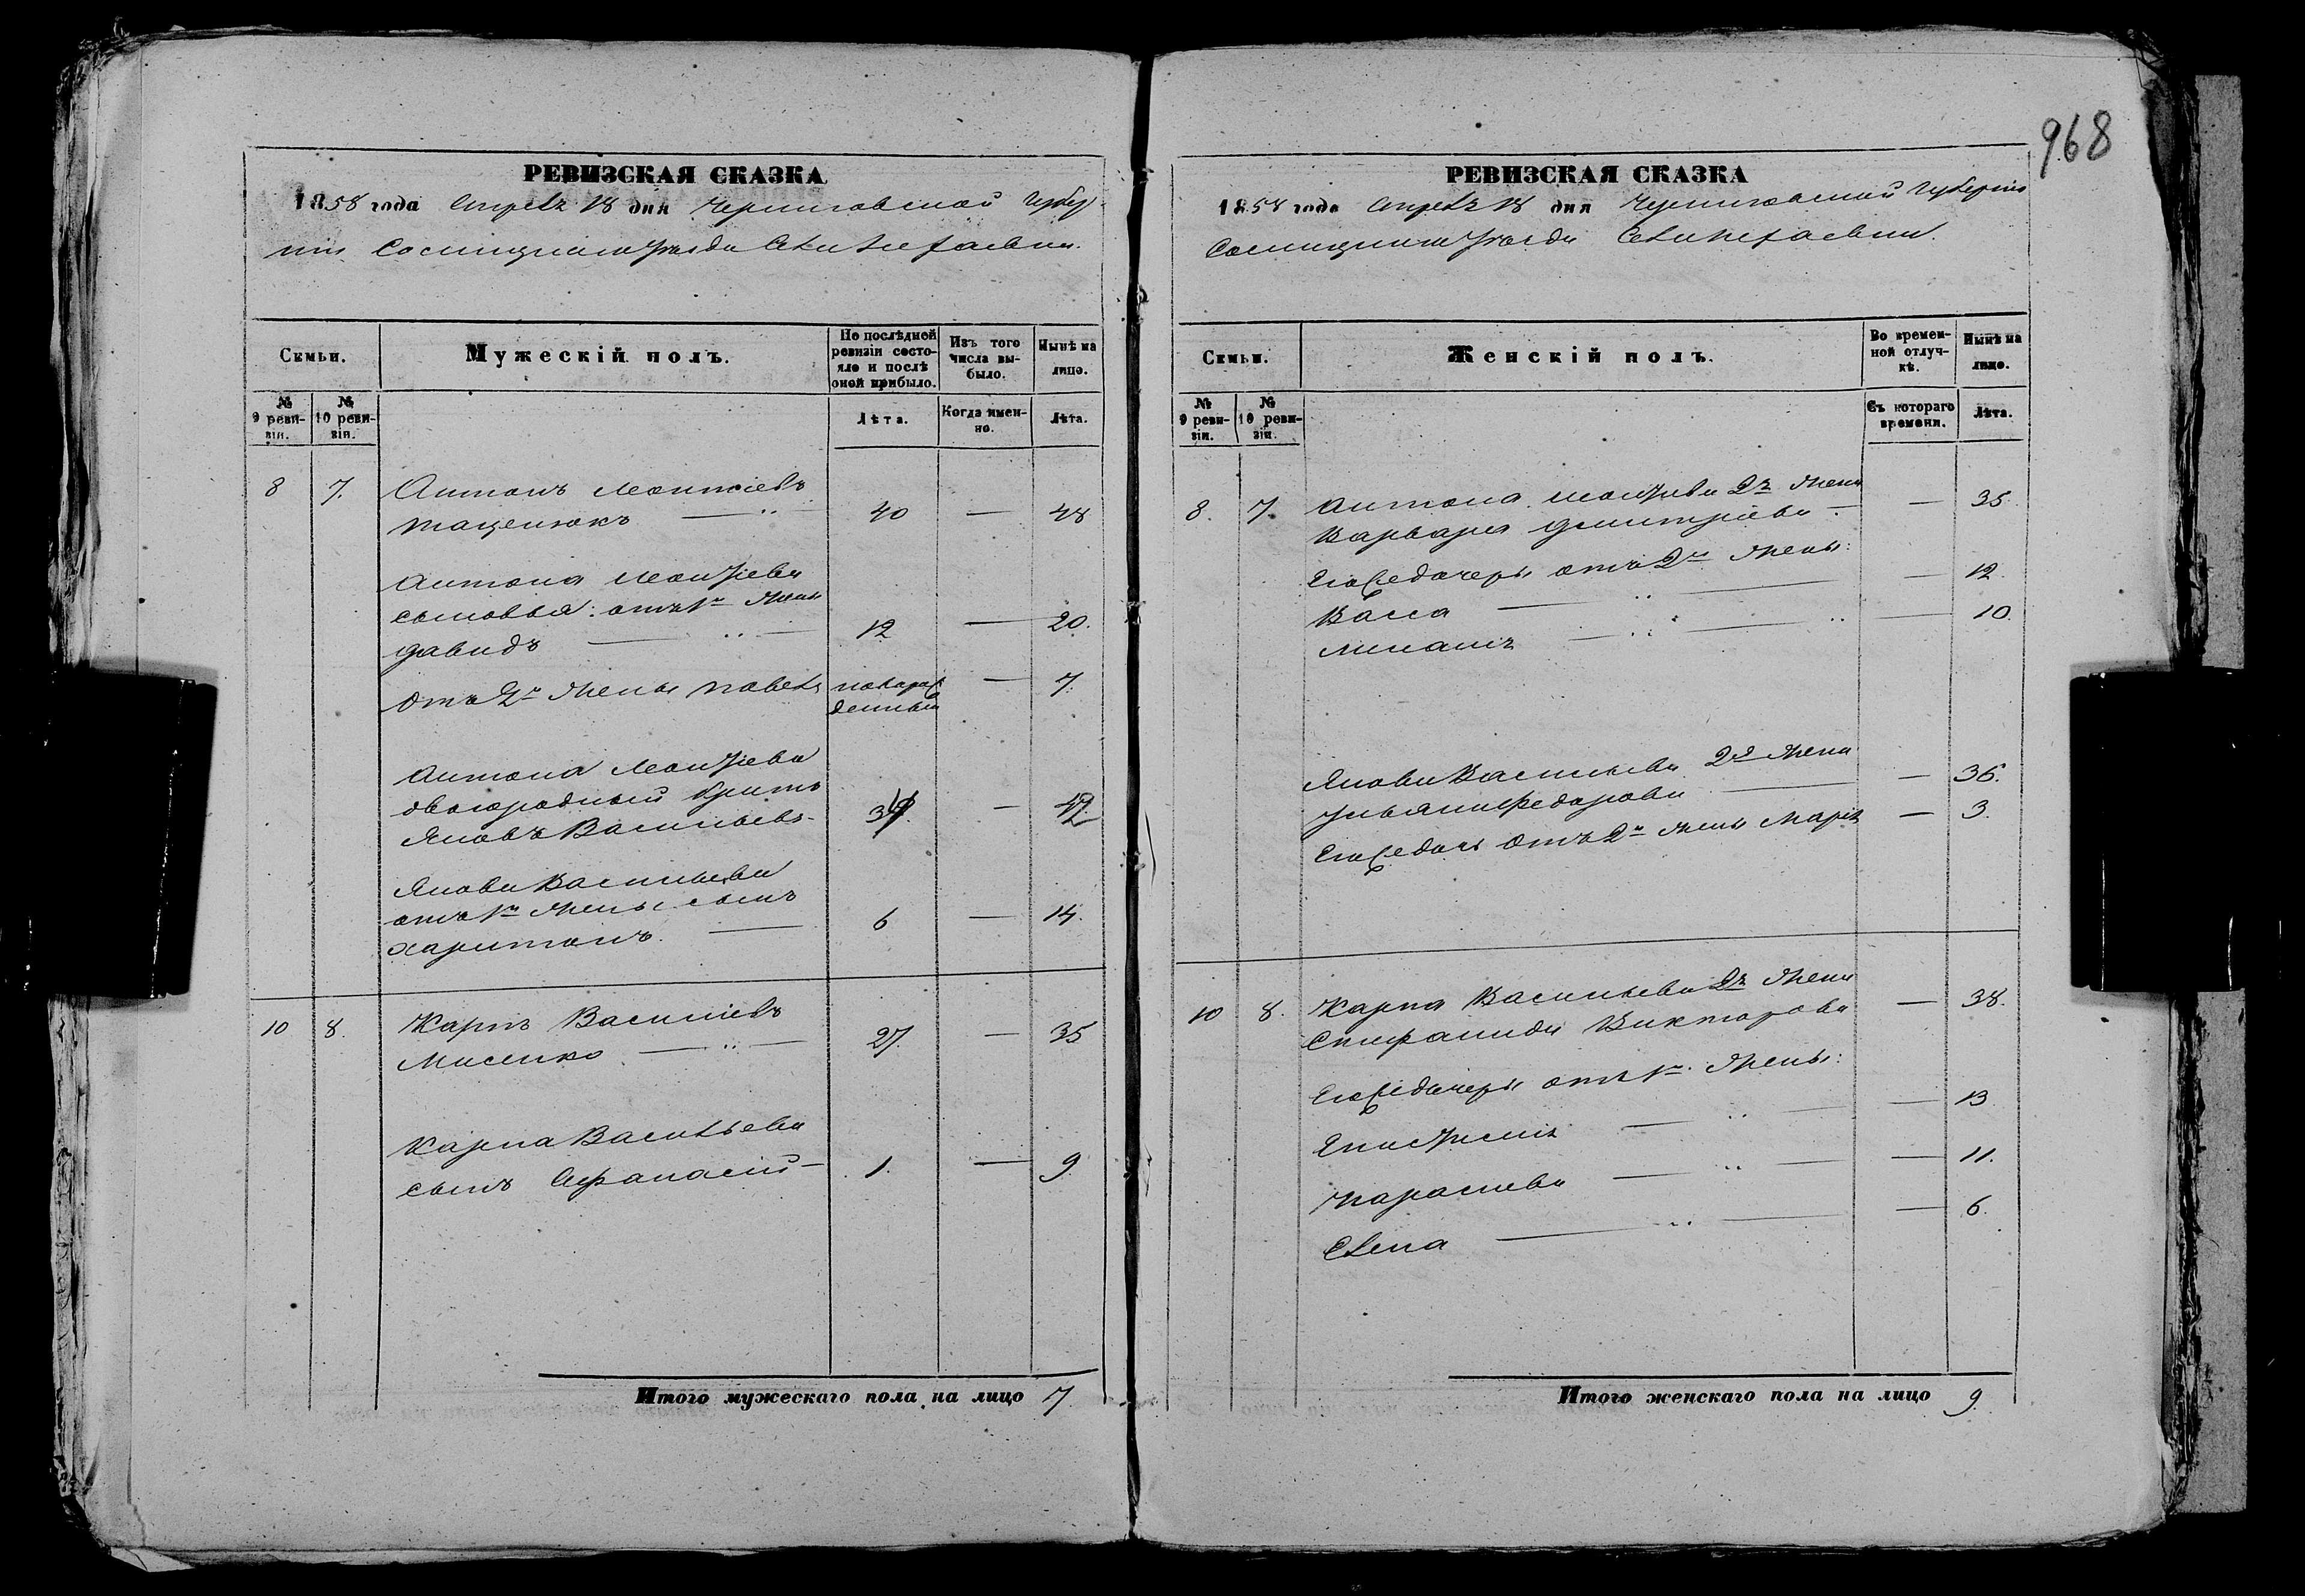 968
РЕВИЗСКАЯ СКАЗКА
1858 года Апреля 18 дня Черниговской Губер-
нiи Сосницкаго Уезда Села
Семьи.
Мужескiй полъ.
По послѣдней ревизiи состояло и послѣ оной прибыло.
Изъ того числа выбыло.
Нынѣ на лицо.
№ 9 ревизiи.
№ 10 ревизiи.
Лѣта.
Когда именно.
Лѣта.
8 7. Антонъ Леонтiевъ
Таценокъ — 40 — 48
Антона Леонтiева
сыновья: отъ 1й жены
Давидъ — 12 — 20.
Отъ 2й жены Павелъ новорожденный — 7.
Антона Леонтiева
двоюродный братъ
Яковъ Васильевъ - 34. — 42
Якова Васильева
отъ 1й жены сынъ
Харитонъ. — 6 — 14.
10 8. Карпъ Василiевъ
Мисенко — 27. — 35
Карпа Васильева
сынъ Афанасiй — 1. — 9
Итого мужескаго пола на лицо 7.
РЕВИЗСКАЯ СКАЗКА
1858 года Апреля 18 дня Черниговской Губернiи
Сосницкаго Уезда Села
Семьи.
Женскiй полъ.
Во временной отлучкѣ.
Нынѣ на лицо.
№ 9 ревизiи.
№ 10 ревизiи.
Съ котораго времени.
Лѣта.
8. 7. Антона Леонтiева 2я жена
Варвара Дмитрiева — — 35.
Его же дочери отъ 2й жены:
Васса — — 12.
— — 10.
Якова Васильева 2я жена
Ульяна Федорова — — 36.
Его же дочь отъ 2й жены Марiя — 3.
10 8. Карпа Васильева 2я жена
Викторова — 38.
Его же дочери отъ 1й жены:
— — 13
Параскева — — 11.
Елена — — 6.
Итого женскаго пола на лицо 9